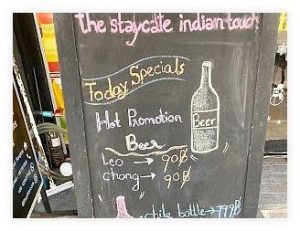 the staycafe indian touch
Today Specials
Hot Promotion
Beer
Beer
Leo → 90฿
chang → 90฿
bottle → 799฿